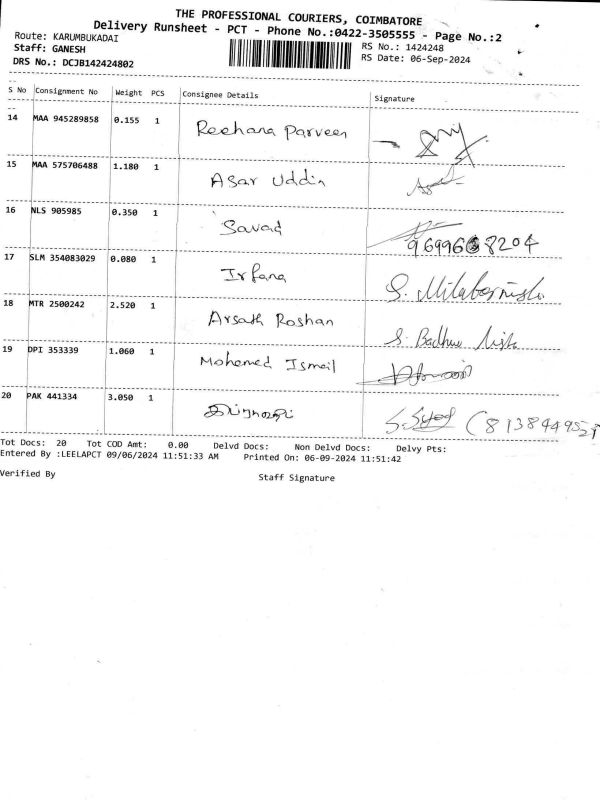 THE PROFESSIONAL COURIERS, COIMBATORE
Delivery Runsheet - PCT - Phone No.:0422-3505555 - Page No.:2
Route: KARUMBUKADAI
RS No.: 1424248
Staff: GANESH
RS Date: 06-Sep-2024
DRS No.: DCJB142424802
S No Consignment No Weight PCS Consignee Details Signature
14 MAA 945289858 0.155 1 Reehana Parveen
15 MAA 575706488 1.180 1 Asar Uddin
16 NLS 905985 0.350 1 Savad
17 SLM 354083029 0.080 1 Irfana
18 MTR 2500242 2.520 1 Arsath Roshan
19 DPI 353339 1.060 1 Mohamed Ismail
20 PAK 441334 3.050 1 S. Syed
Tot Docs: 20 Tot COD Amt: 0.00 Delvd Docs: Non Delvd Docs: Delvy Pts:
Entered By :LEELAPCT 09/06/2024 11:51:33 AM Printed On: 06-09-2024 11:51:42
Verified By
Staff Signature